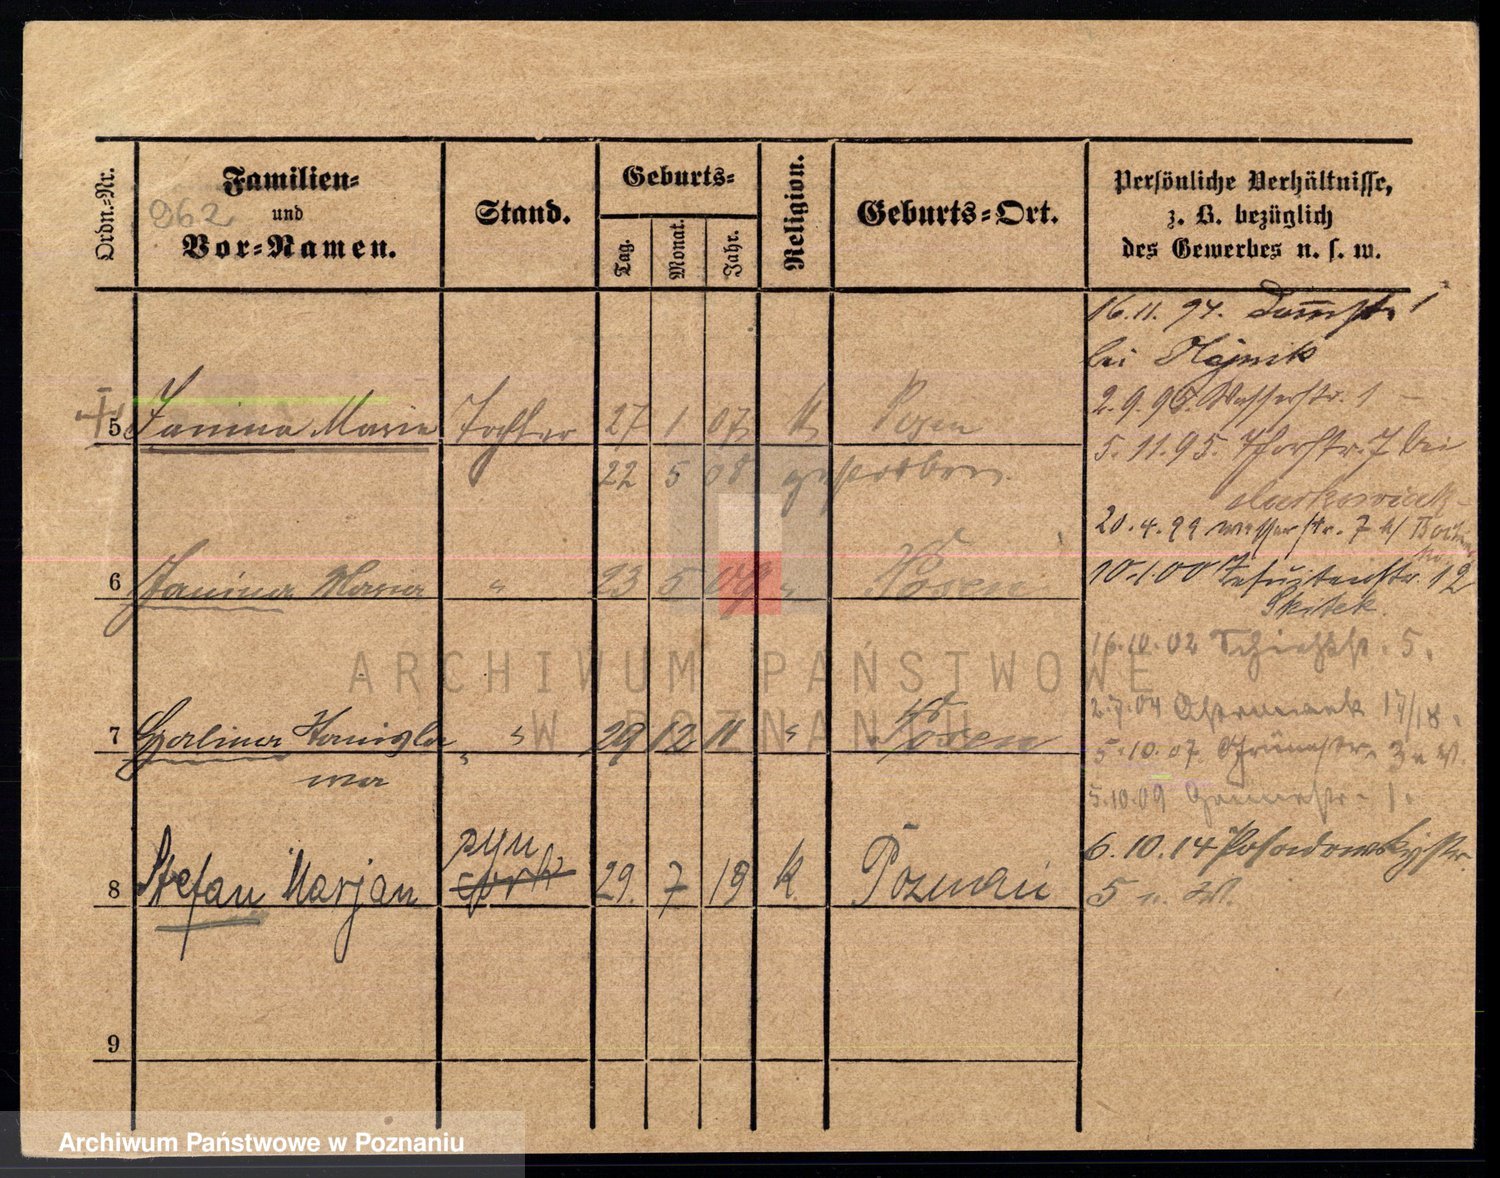 Ordn.-Nr.
Familien-
und
Vor-Namen.
962.
Stand.
Geburts-
Tag.
Monat.
Jahr.
Religion.
Geburts-Ort.
Persönliche Verhältnisse,
z. B. bezüglich
des Gewerbes u. s. w.
5 Janina Marie Tochter 27 1 07 K Posen
22 5 08 gestorben.
6 Janina Maria " 23 5 09 " Posen
7 Stanisla " " 29 12 11 " Posen
wa
8 Stefan Marjan syn 29. 7 19 K. Poznań
9
16.11.94. Dammstr. 1
bei
2.9.95. Wasserstr. 1 -
5.11.95. Thorstr. 7 bei
Markowiak
20.4.99 Wasserstr. 7 b/
10.1.00 Jesuitenstr. 12
Skitek.
16.10.02 Schießstr. 5.
2.7.04 17/18.
5.10.07. Grünestr. 3 u. W.
5.10.09 Gartenstr. 1.
6.10.14 Posadowskystr.
5 u. W.
ARCHIWUM PAŃSTWOWE
W POZNANIU
Archiwum Państwowe w Poznaniu